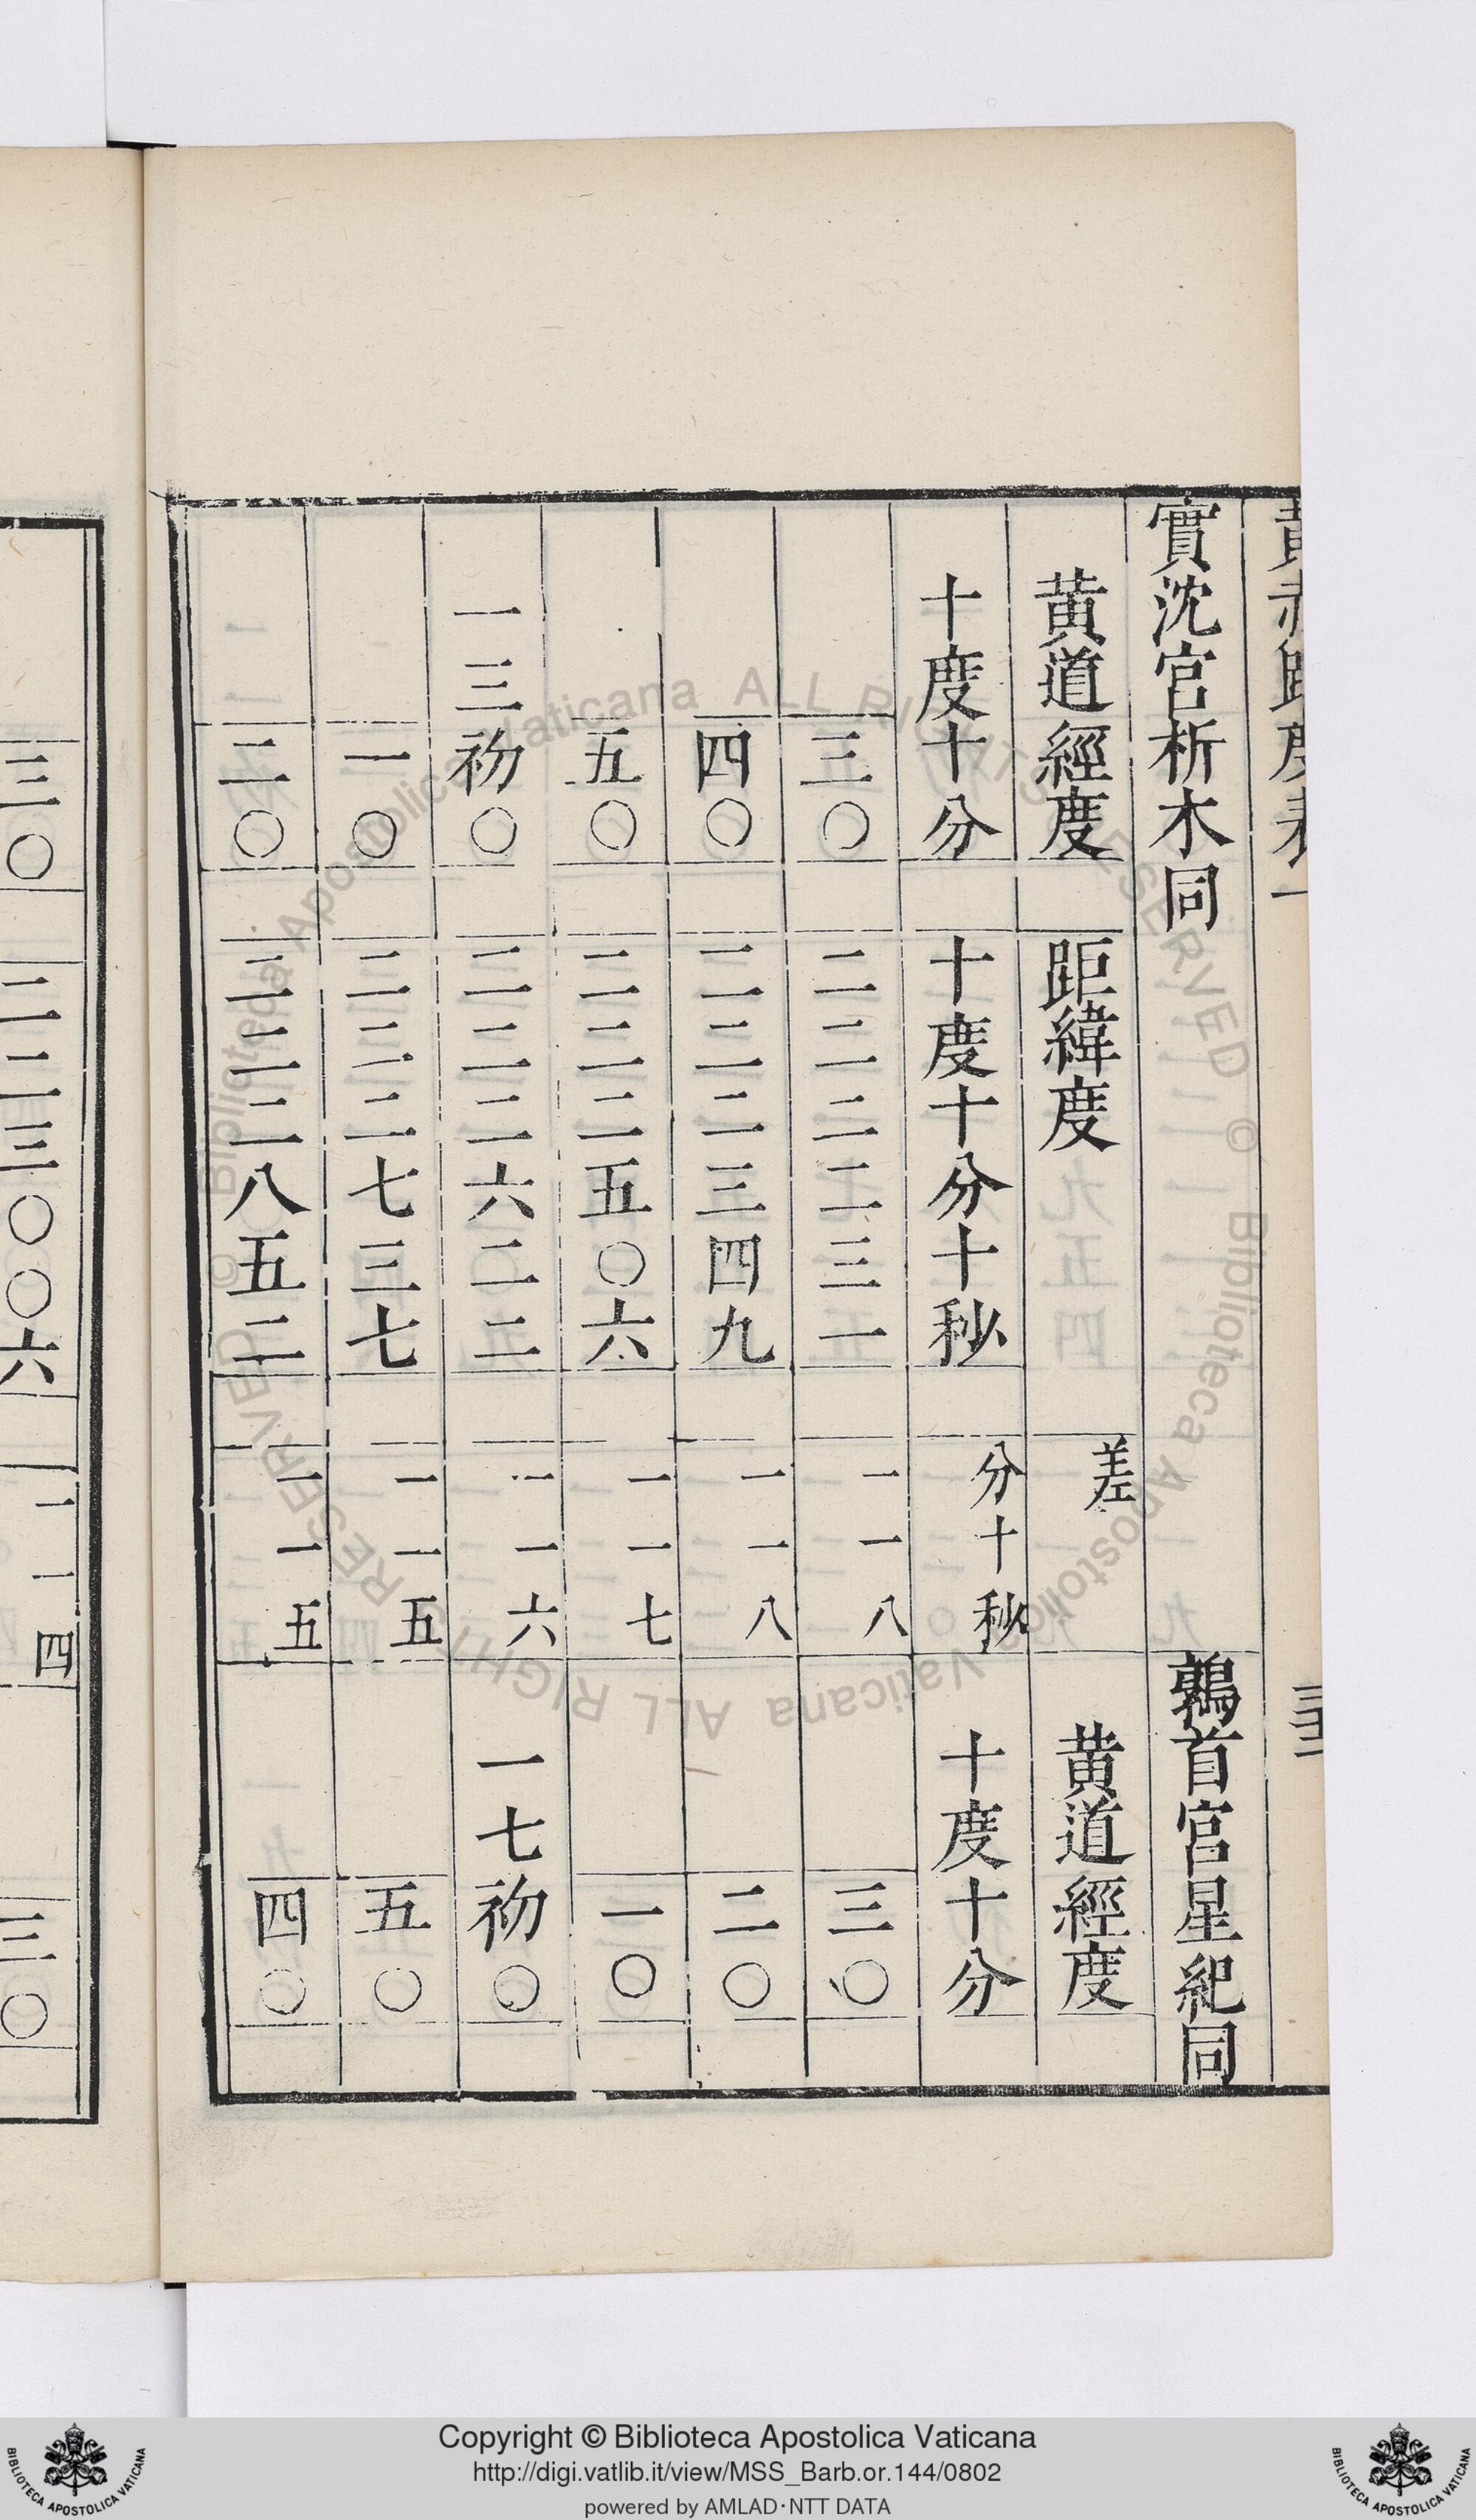 實沈宮析木同 鶉首宮星紀同
黃道經度 距緯度 差 黃道經度
十度十分 十度十分十秒 分十秒 十度十分
三〇 二二二二三一 一一八 三〇
四〇 二二二三四九 一一八 二〇
五〇 二二二五〇六 一一七 一〇
一三初〇 二二二六二二 一一六 一七初〇
一〇 二二二七三七 一一五 五〇
二〇 二二二八五二 一一五 四〇
三〇 二二三〇〇六 一一四 三〇
© Biblioteca Apostolica Vaticana ALL RIGHTS RESERVED © Biblioteca Apostolica Vaticana ALL RIGHTS RESERVED
Copyright © Biblioteca Apostolica Vaticana
http://digi.vatlib.it/view/MSS_Barb.or.144/0802
powered by AMLAD·NTT DATA
BIBLIOTECA APOSTOLICA VATICANA
BIBLIOTECA APOSTOLICA VATICANA